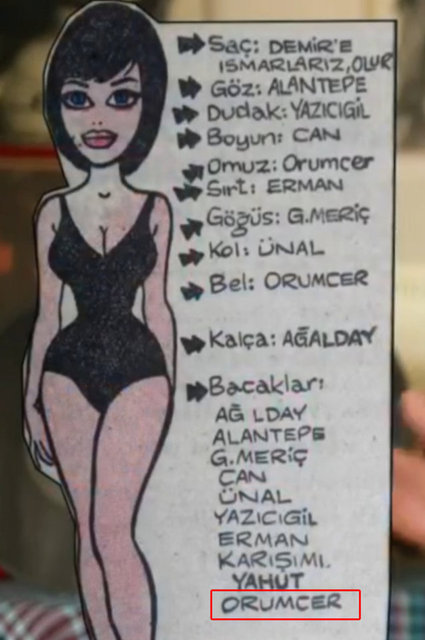 Saç: DEMİR'E
ISMARLARIZ, OLUR
Göz: ALANTEPE
Dudak: YAZICIGİL
Boyun: CAN
Omuz: Orumcer
Sırt: ERMAN
Göğüs: G.MERİÇ
Kol: ÜNAL
Bel: ORUMCER
Kalça: AĞALDAY
Bacaklar:
AĞ LDAY
ALANTEPE
G.MERİÇ
CAN
ÜNAL
YAZICIGİL
ERMAN
KARIŞIMI.
YAHUT
ORUMCER